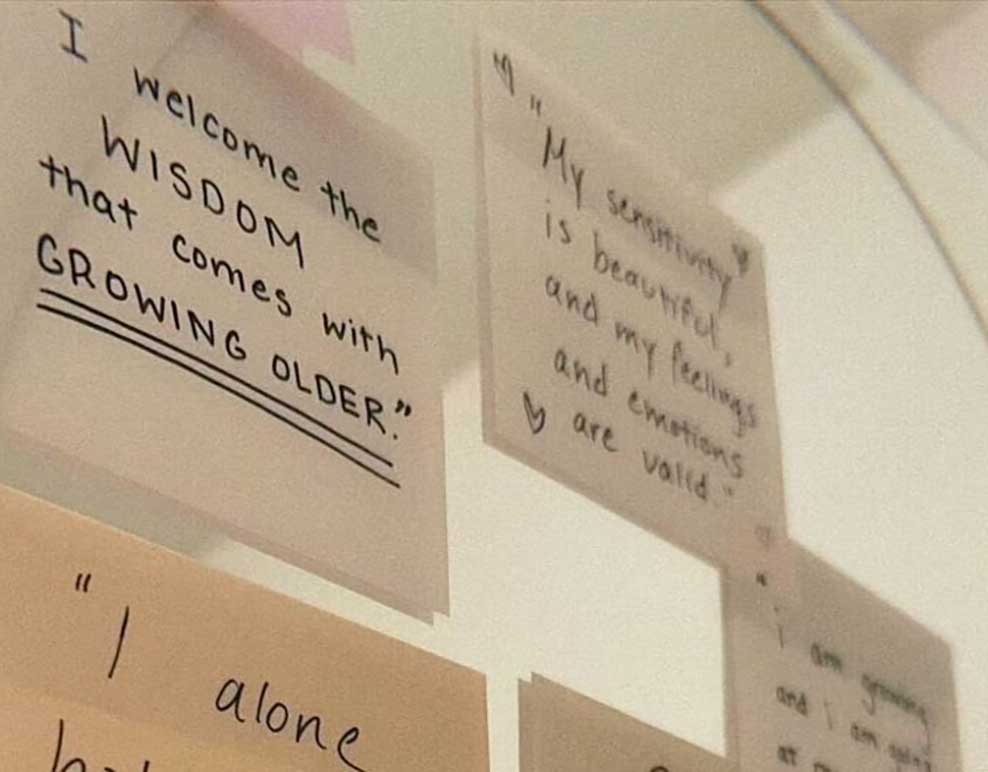 I
welcome the
WISDOM
that comes with
GROWING OLDER."
"My sensitivity
is beautiful,
and my feelings
and emotions
are valid."
"I alone
"i am growing
and i am going
at